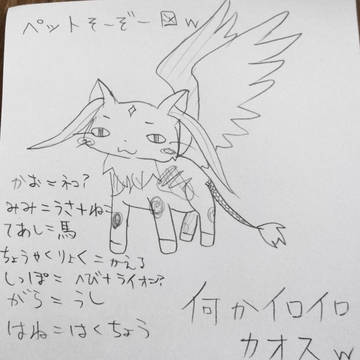 ペットそーぞー図w
かお=ネコ?
みみ=うさ+ねこ
てあし=馬
ちょうやくりょく=かえる
しっぽ=へび+ライオン?
がら=うし
はね=はくちょう
何かイロイロ
カオスw